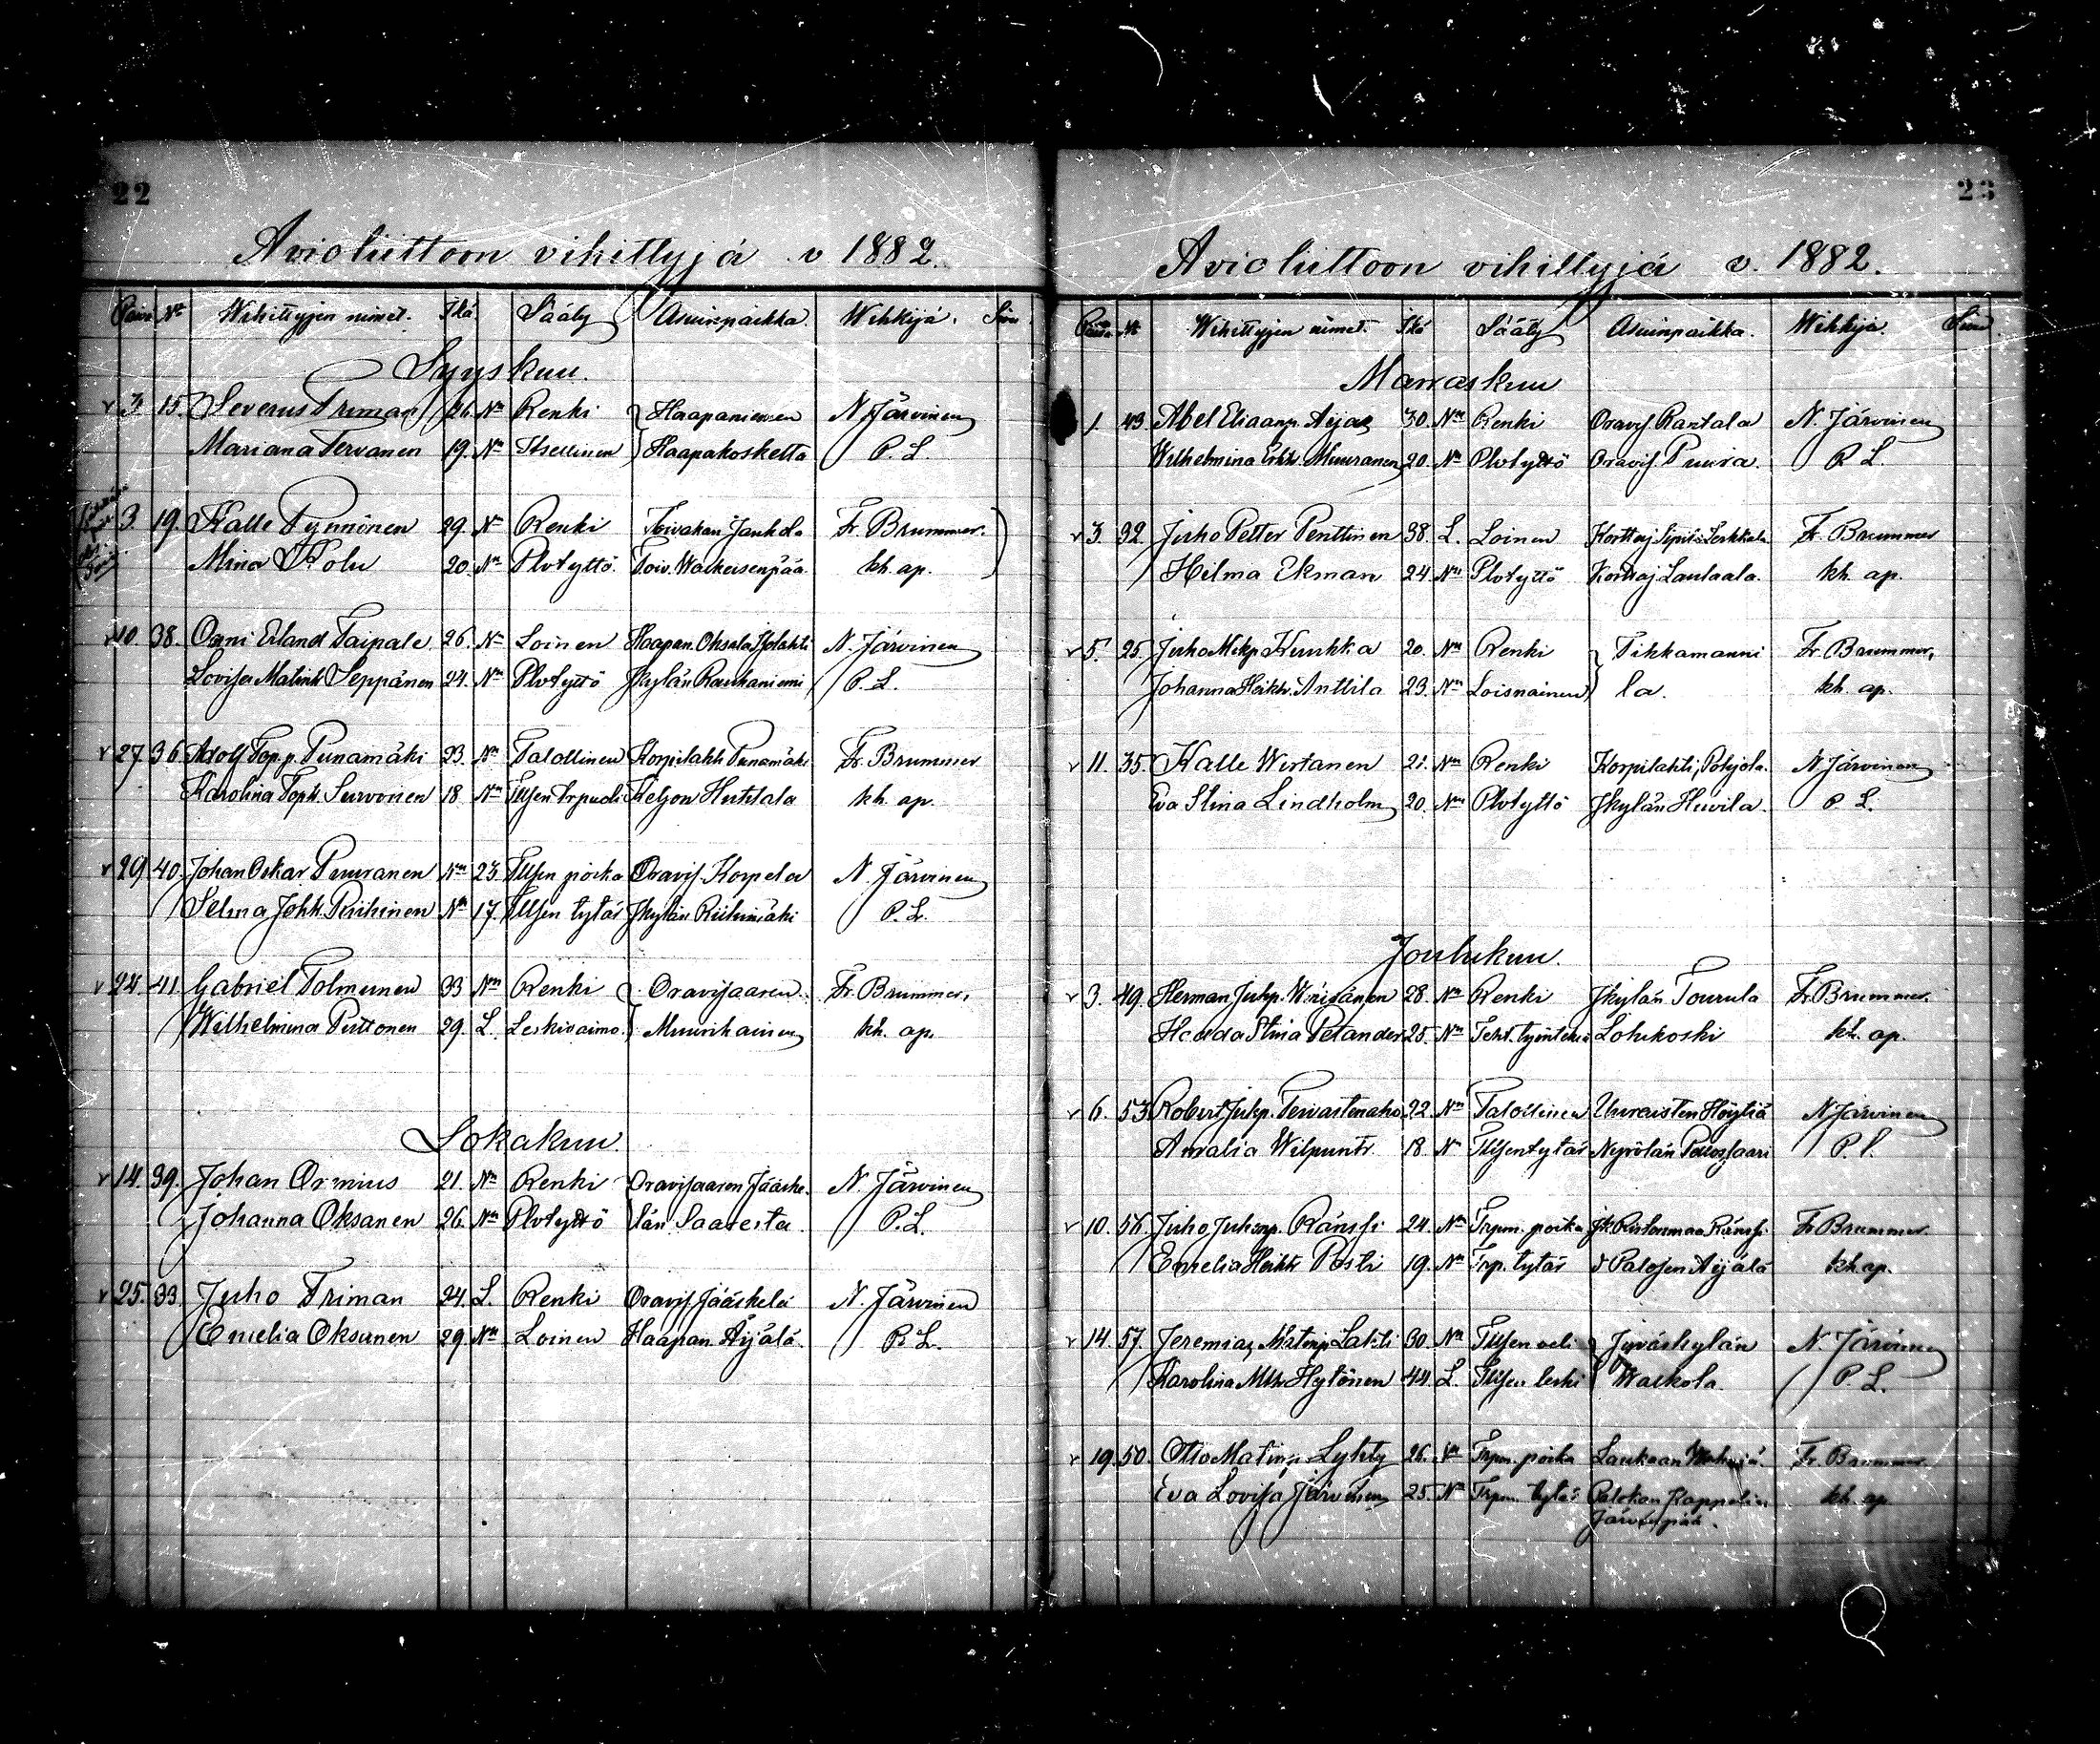 22
Avioliittoon vihittyjä v 1882.
Päivä No Wihittyjen nimet. Ikä Sääty Asuinpaikka. Wihkijä. Sivu
Syyskuu.
3 15. Severus Friman 26. Nn Renki Haapaniemen N. Järvinen
Mariana Tervanen 19. Nn Itsellinen Haapakoskelta P. L.
3 19. Kalle Pynnönen 29. Nn Renki Toivakan Fr. Brummer.
Mina Kolu 20. Nn Plvtyttö. Toiv. kh. ap.
10. 38. Erland Taipale 26. Nn Loinen Haapan. Oksala N. Järvinen
Lovisa Matint. Seppänen 24. Nn Plvtyttö Jkylän Rauhaniemi P. L.
27. 36. Adolf Top.p. Punamäki 23. Nn Talollinen Korpilahti Punamäki Fr. Brummer
Karolina Survonen 18 Nn Keljon Huttala kh. ap.
29. 40. Johan Oskar Puuranen Nm 23. Tllsen poika Oravis. Korpela N. Järvinen
Selma Johh. Riihinen Nn 17. Tllsen tytär Jkylän Riihimäki P. L.
24. 41. Gabriel Tolmunen 33 Nm Renki Oravisaaren Fr. Brummer,
Wilhelmina Puttonen 29. L. Leskivaimo. Muurikainen kh. ap.
Lokakuu.
14. 39. Johan Ormius 21. Nn Renki Oravisaaren Jääske- N. Järvinen
Johanna Oksanen 26. Nn Plvtyttö län Saaresta P. L.
25. 33. Juho Friman 24. L. Renki Oravis. Jääskelä N. Järvinen
Emelia Oksanen 29. Nn Loinen Haapan. Äijälä. P. L.
23
Avioliittoon vihittyjä v. 1882.
Päivä No Wihittyjen nimet. Ikä Sääty Asuinpaikka. Wihkijä. Sivu
Marraskuu
1. 43 Abel Eliaanp. Aijas 30. Nm Renki Oravis. Rantala N. Järvinen
Wilhelmina Erkk. Muuranen 20. Nn Plvtyttö Oravis. Puura. P. L.
3. 32. Juho Petter Penttinen 38. L. Loinen Fr. Brummer
Hilma Ekman 24. Nn Plvtyttö Korttaj. Lautaala. kh. ap.
5. 25. Juho Mikp. Kuukka 20. Nm Renki Tikkamanni Fr. Brummer,
Johanna Heikk. Anttila 23. Nn Loisnainen la. kh. ap.
11. 35. Kalle Wirtanen 21. Nm Renki Korpilahti, Pohjola. N. Järvinen
Eva Stina Lindholm 20. Nm Plvtyttö Jkylän Huvila. P. L.
Joulukuu.
3. 49. Herman Juhp. 28. Nn Renki Jkylän Tourula Fr. Brummer.
Hedda Stina Petander 25. Nn Teht. työntekiä Lohikoski kh. ap.
6. 53 Robert Juhp. Tervastenaho 22. Nm Talollinen Uuraisten Höytiä N. Järvinen
Amalia Wilpuntr. 18 N Tllsentytär Nyrölän P. L.
10. 56. Juho Juhonp. Ränssi 24. Nn Trpm. poika Ränssi Fr. Brummer.
Emelia Heikk. Posti 19. Nn Trp. tytär Äijälä kh. ap.
14. 57. Jeremias Matinp. Lahti 30. Nn Tllsen veli Jyväskylän N. Järvinen
Karolina Mth. Hytönen 44. L. Tllsen leski Waskola. P. L.
19. 50. Otto Matinp. Lyhty 26. Nn Trpm. poika Laukaan Fr. Brummer.
Eva Lovisa Järvinen 25. Nn Trpm. tytär Palokan Kappelin kh. ap.
Järvenpää.